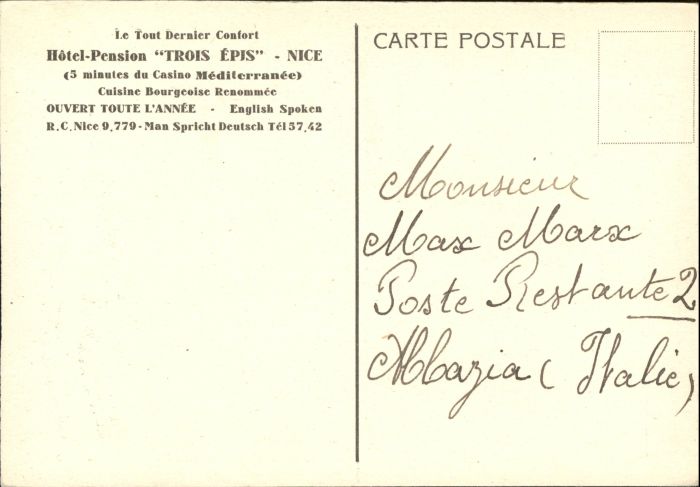 Le Tout Dernier Confort
Hôtel-Pension "TROIS ÉPIS" - NICE
(5 minutes du Casino Méditerranée)
Cuisine Bourgeoise Renommée
OUVERT TOUTE L'ANNÉE - English Spoken
R.C. Nice 9.779 - Man Spricht Deutsch Tél 57.42
CARTE POSTALE
Monsieur
Max Marx
Poste Restante 2
Abbazia (Italie)